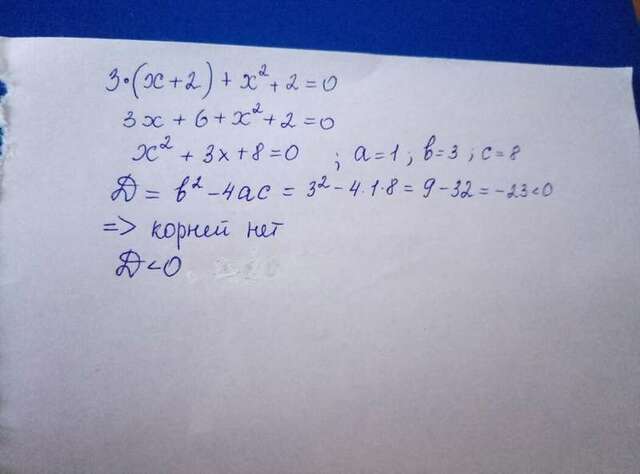 3·(x+2)+x²+2=0
3x+6+x²+2=0
x²+3x+8=0 ; a=1; b=3; c=8
D=b²-4ac=3²-4·1·8=9-32=-23<0
=> корней нет
D<0